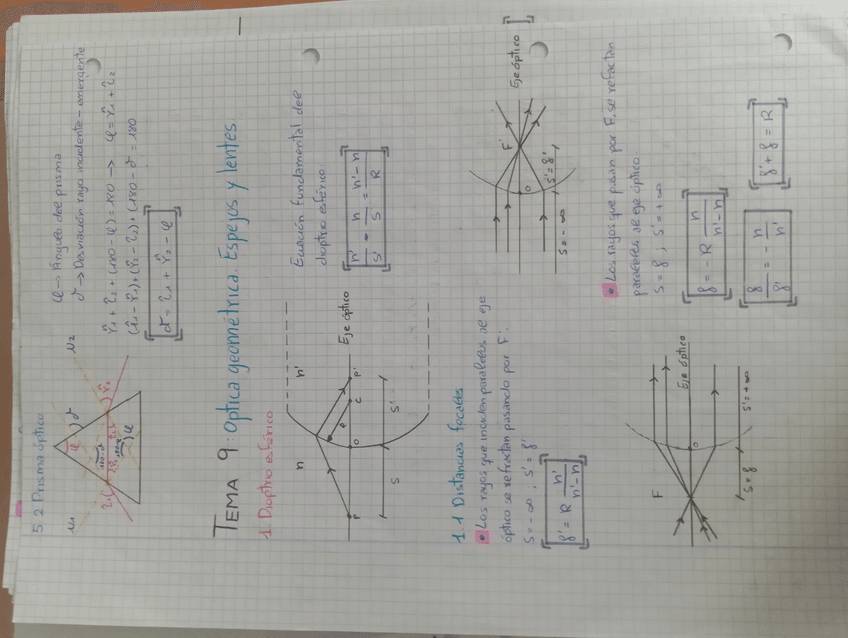 5.2 Prisma óptico
N1
N2
φ → Ángulo del prisma
δ → Desviación rayo incidente - emergente
r̂1 + î2 + (180 - φ) = 180 → φ = r̂1 + î2
(î1 - r̂1) + (r̂2 - î2) + (180 - δ) = 180
δ = î1 + r̂2 - φ
TEMA 9: Optica geométrica. Espejos y lentes
1. Dioptrio esférico
n
n'
Eje óptico
P
O
C
P'
R
S
S'
Ecuación fundamental del
dioptrio esférico:
n'/S' - n/S = n'-n/R
1.1 Distancias focales
• Los rayos que inciden paralelos al eje
óptico se refractan pasando por F'.
S = -∞ ; S' = f'
f' = R n'/n'-n
F'
O
Eje óptico
S = -∞
S' = f'
• Los rayos que pasan por F, se refractan
paralelos al eje óptico.
S = f ; S' = +∞
f = -R n/n'-n
f/f' = - n/n'
f' + f = R
F
O
Eje óptico
S = f
S' = +∞